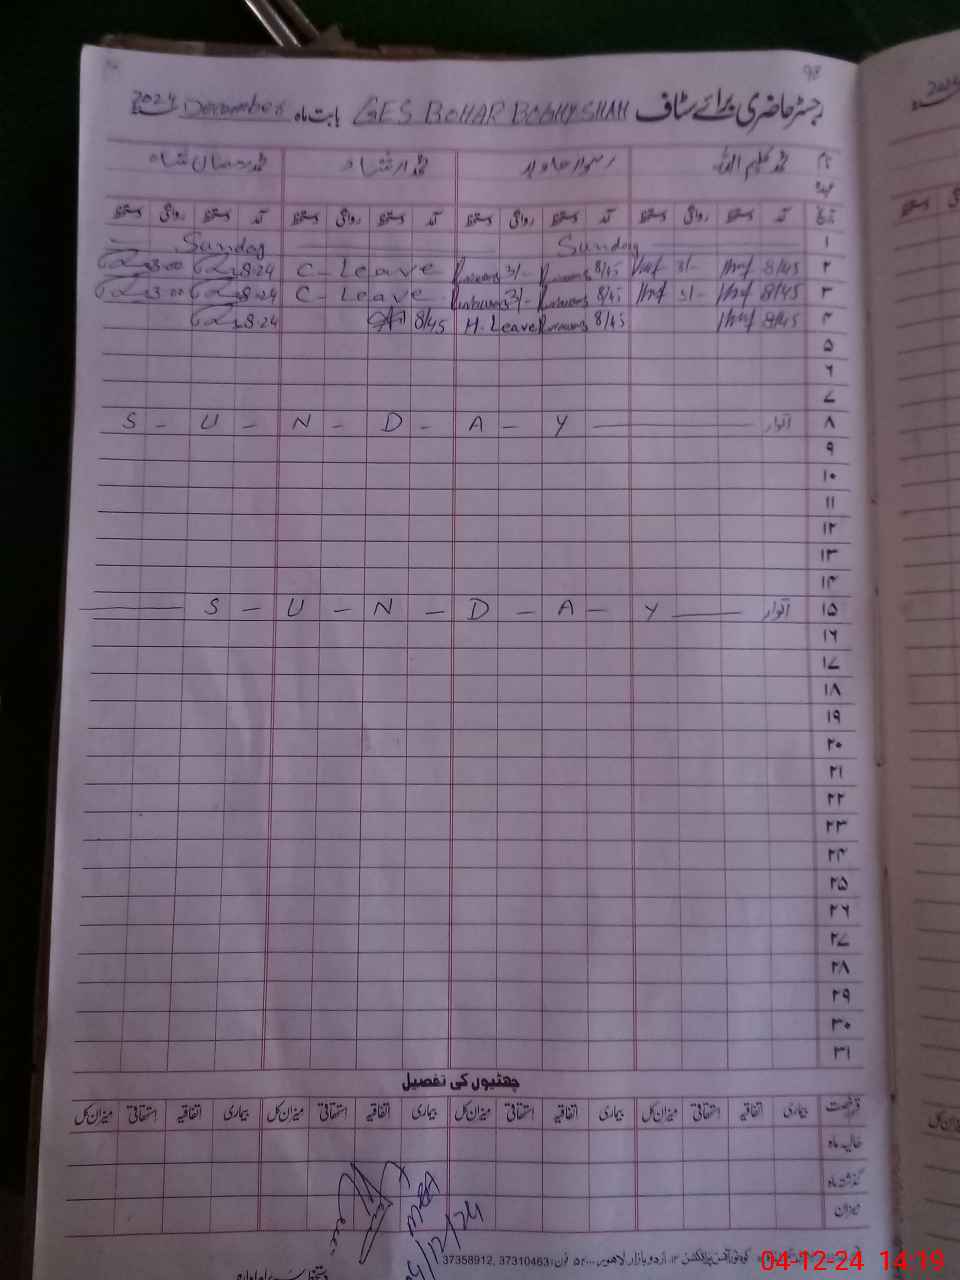 98
رجسٹر حاضری برائے سٹاف GES BOHAR BOGHYSHAH بابت ماہ December 2024
نام محمد کلیم اللہ محمد ارشاد محمد رمضان شاہ
عہدہ
تاریخ آمد دستخط روانگی دستخط آمد دستخط روانگی دستخط آمد دستخط روانگی دستخط آمد دستخط روانگی دستخط
۱ Sunday Sunday
۲ 8/45 3/- 8/45 3/- C-Leave 8.24 3:00
۳ 8/45 3/- 8/45 3/- C-Leave 8.24 3:00
۴ 8/45 8/45 H.Leave 8/45 8.24
۵
۶
۷
۸ اتوار S - U - N - D - A - Y
۹
۱۰
۱۱
۱۲
۱۳
۱۴
۱۵ اتوار S - U - N - D - A - Y
۱۶
۱۷
۱۸
۱۹
۲۰
۲۱
۲۲
۲۳
۲۴
۲۵
۲۶
۲۷
۲۸
۲۹
۳۰
۳۱
چھٹیوں کی تفصیل
رخصت بیماری اتفاقیہ استحقاقی میزان کل بیماری اتفاقیہ استحقاقی میزان کل بیماری اتفاقیہ استحقاقی میزان کل بیماری اتفاقیہ استحقاقی میزان کل
حالیہ ماہ
گذشتہ ماہ
میزان
اردو بازار لاہور فون: 37310463, 37358912
04-12-24 14:19